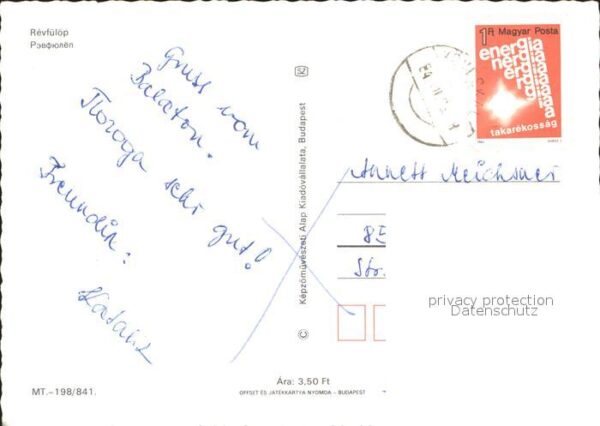 Révfülöp
Рэвфюлёп
Gruss vom
Balaton.
Погода sehr gut!
Freundin:
Katalin
MT.–198/841.
Képzőművészeti Alap Kiadóvállalata, Budapest
©
Ára: 3,50 Ft
OFFSET ÉS JÁTÉKKÁRTYA NYOMDA – BUDAPEST
1Ft Magyar Posta
energia
takarékosság
Annett Meichsner
Str.
privacy protection
Datenschutz